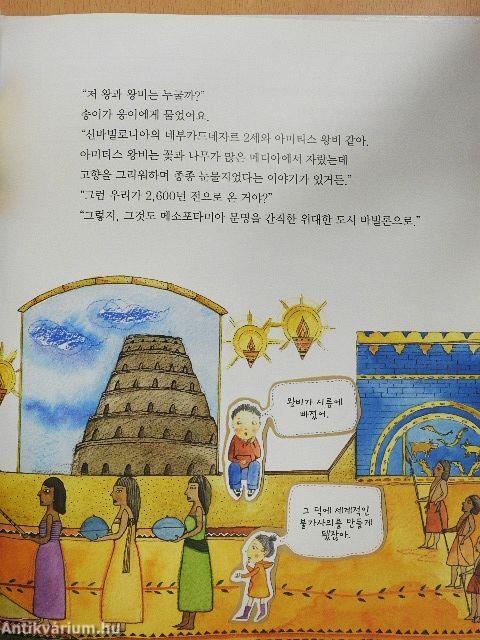 "저 왕과 왕비는 누굴까?"
송이가 웅이에게 물었어요.
"신바빌로니아의 네부카드네자르 2세와 아미티스 왕비 같아.
아미티스 왕비는 꽃과 나무가 많은 메디아에서 자랐는데
고향을 그리워하며 종종 눈물지었다는 이야기가 있거든."
"그럼 우리가 2,600년 전으로 온 거야?"
"그렇지, 그것도 메소포타미아 문명을 간직한 위대한 도시 바빌론으로."
왕비가 시름에
빠졌어.
그 덕에 세계적인
불가사의를 만들게
됐잖아.
Antikvárium.hu